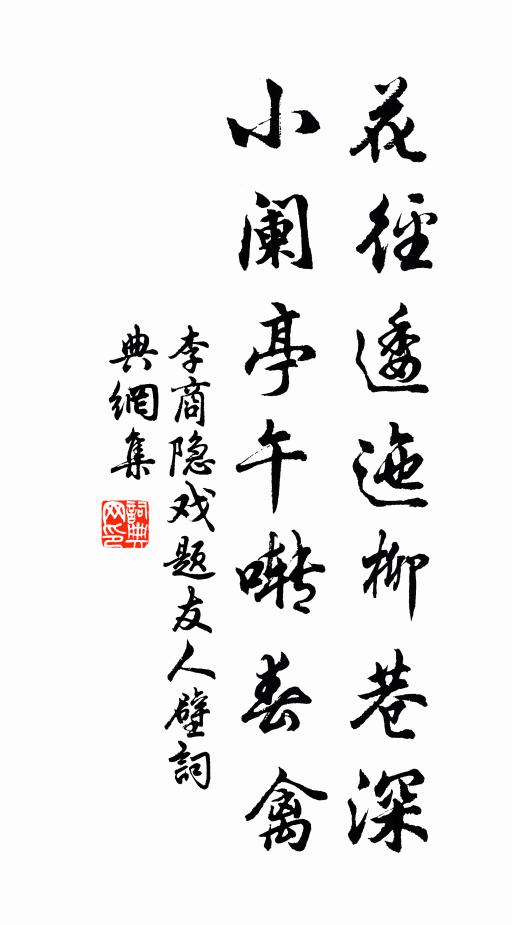 花徑逶迤柳巷深
小阑亭午啭春禽
李商隐戏题友人壁詞
典網集
詞典网印